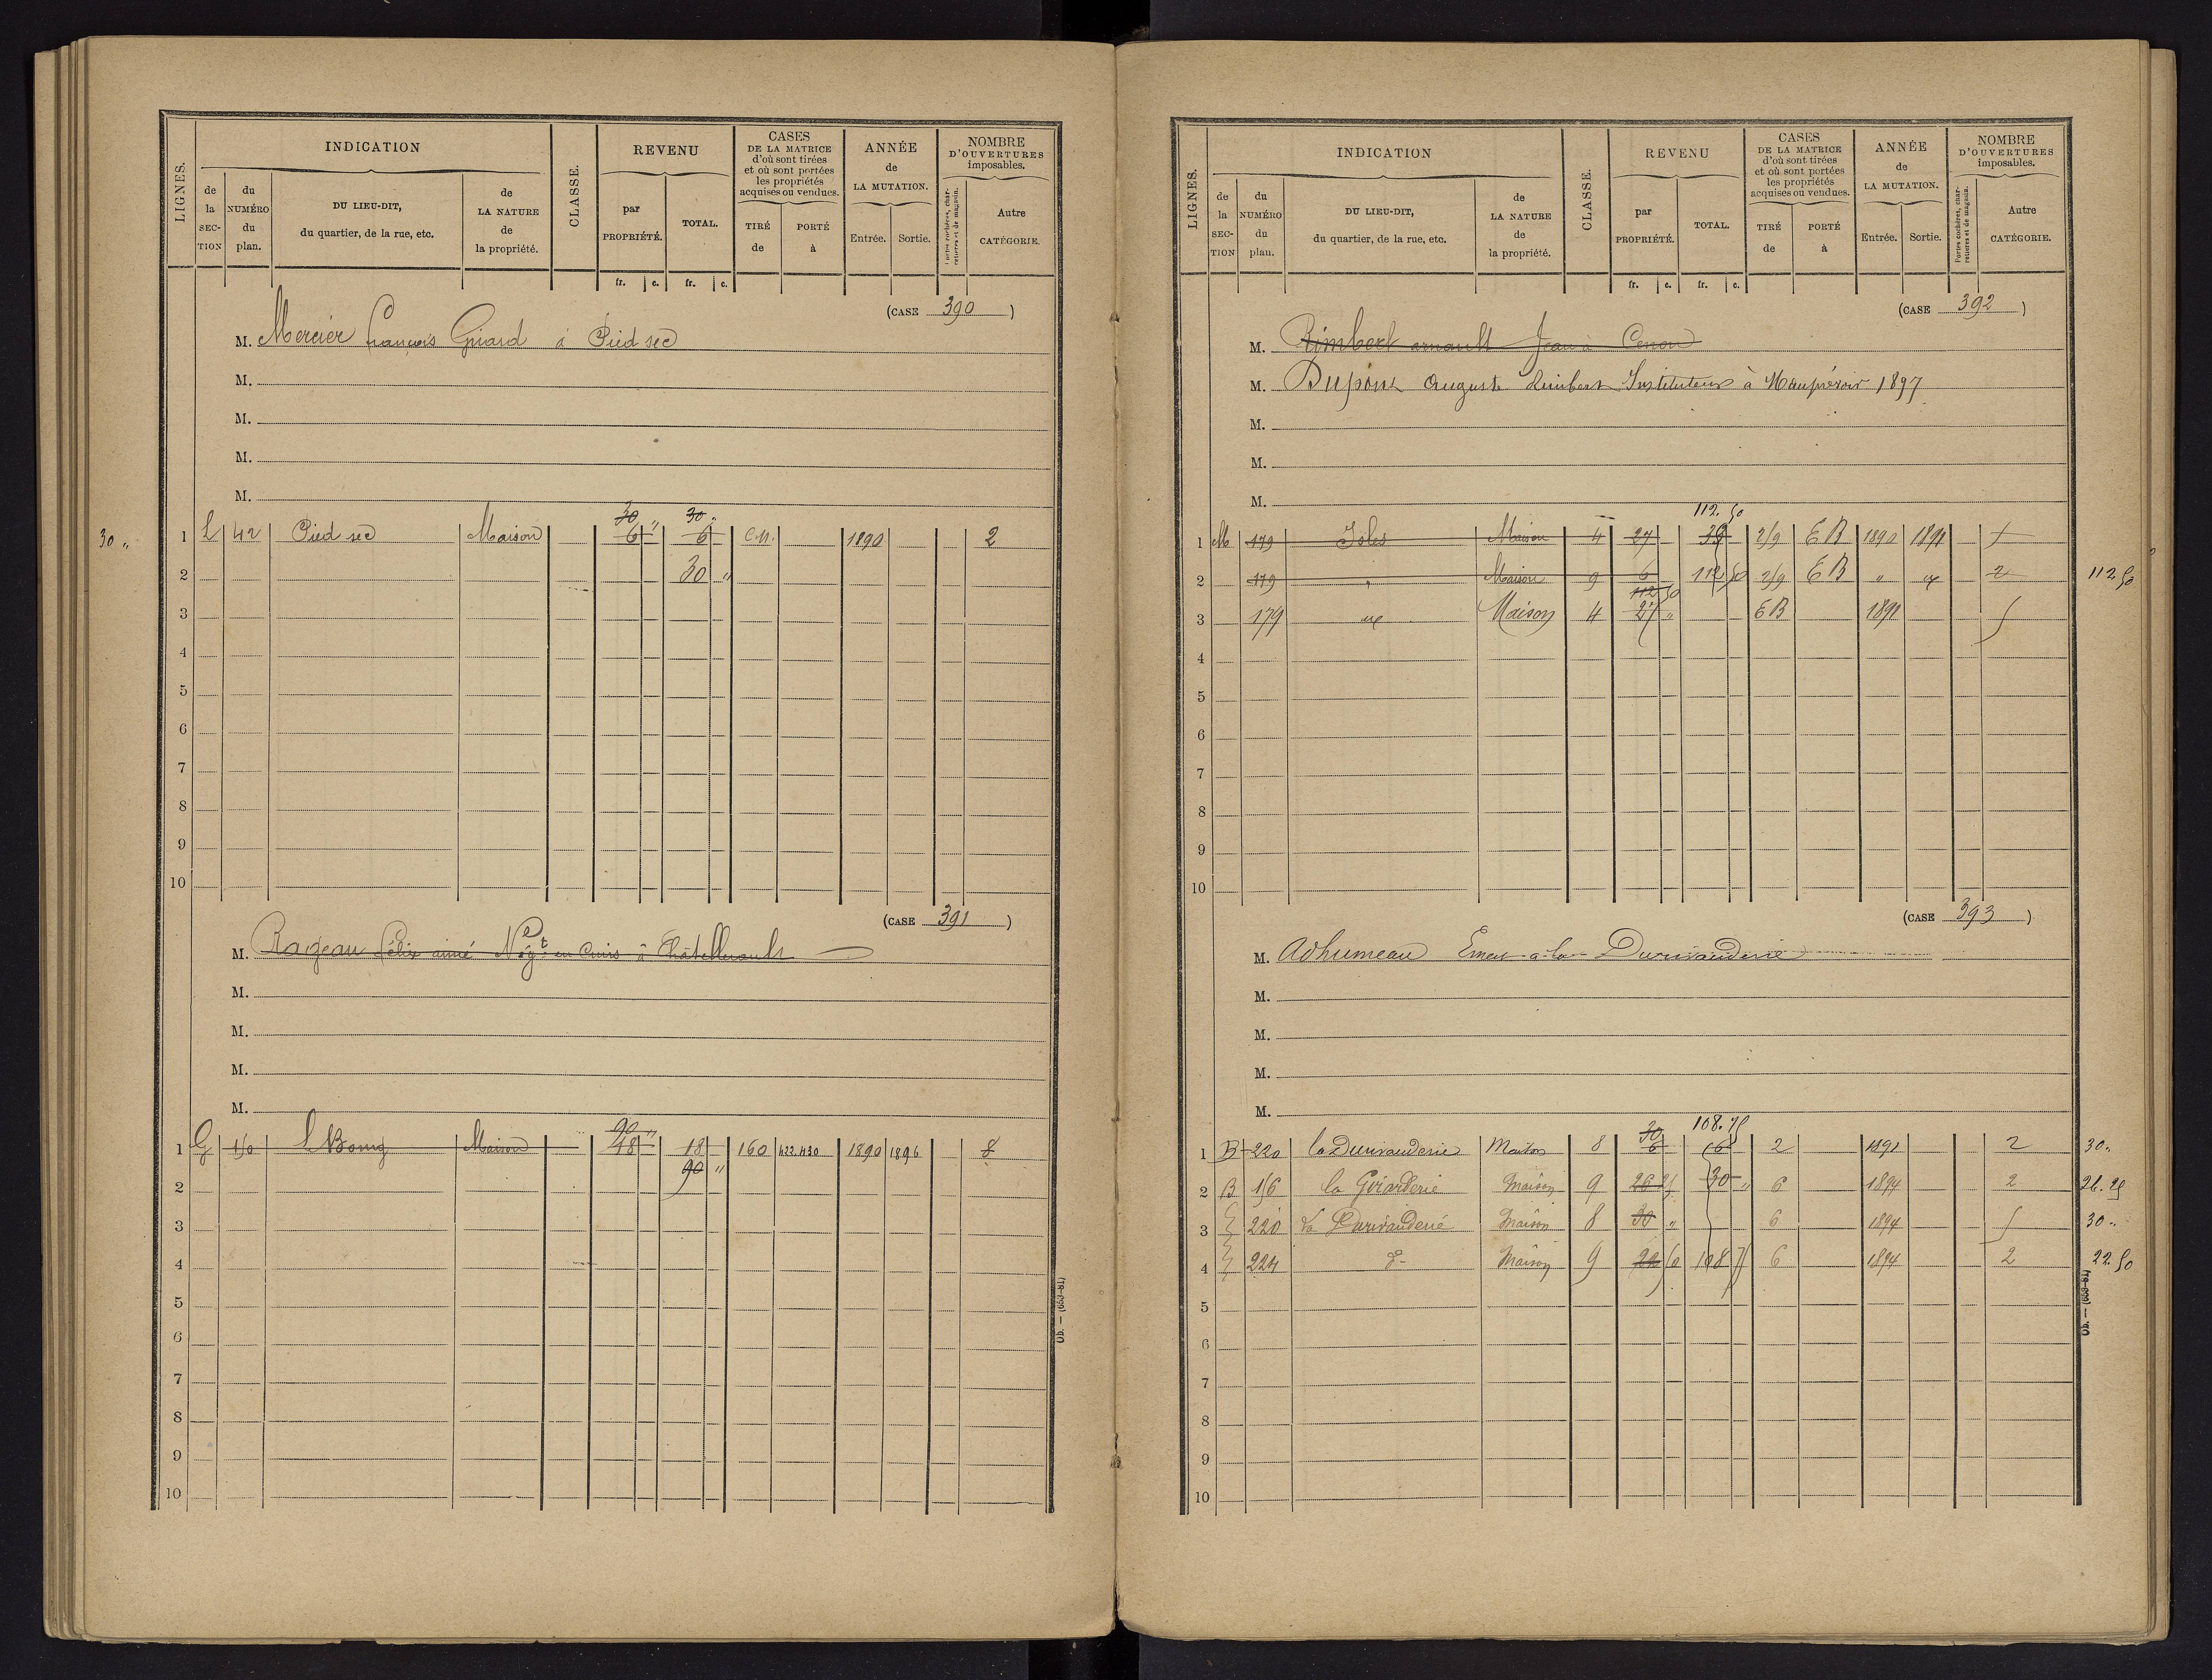 LIGNES. INDICATION CLASSE. REVENU CASES DE LA MATRICE d'où sont tirées et où sont portées les propriétés acquises ou vendues. ANNÉE de LA MUTATION. NOMBRE D'OUVERTURES imposables.
de la SECTION du NUMÉRO du plan. DU LIEU-DIT, du quartier, de la rue, etc. de LA NATURE de la propriété. par PROPRIÉTÉ. TOTAL. TIRÉ de PORTÉ à Entrée. Sortie. Portes cochères, charretières et de magasin. Autre CATÉGORIE.
fr. c. fr. c.
(CASE 390)
M. Mercier François Girard à Pied sec
M.
M.
M.
M.
30 " 30 "
30 " 1 L 42 Pied sec Maison 6 6 C.N. 1890 2
2 30 "
3
4
5
6
7
8
9
10
(CASE 391)
M. Rageau Félix aimé Négt en Cuirs à Châtellerault
M.
M.
M.
M.
90 "
1 G 150 Bourg Maison 48 18 160 422.430 1890 1896 8
90 "
2
3
4
5
6
7
8
9
10
Ob. — (659-81)
LIGNES. INDICATION CLASSE. REVENU CASES DE LA MATRICE d'où sont tirées et où sont portées les propriétés acquises ou vendues. ANNÉE de LA MUTATION. NOMBRE D'OUVERTURES imposables.
de la SECTION du NUMÉRO du plan. DU LIEU-DIT, du quartier, de la rue, etc. de LA NATURE de la propriété. par PROPRIÉTÉ. TOTAL. TIRÉ de PORTÉ à Entrée. Sortie. Portes cochères, charretières et de magasin. Autre CATÉGORIE.
fr. c. fr. c.
(CASE 392)
M. Rimbert arnault Jean à Cenon
M. Dupont Auguste Rimbert Instituteur à Mauprévoir 1897
M.
M.
M.
112.50
1 M 179 Isles Maison 4 27 33 219 EB 1890 1891
2 179 " Maison 9 6 112 50 219 EB " 2 112.50
112 50
3 179 Maison 4 27 " EB 1891 5
4
5
6
7
8
9
10
(CASE 393)
M. Adhumeau à la Durivauderie
M.
M.
M.
M.
30 108.75
1 B 220 la Durivauderie Maison 8 6 6 2 1891 2 30 "
2 B 156 la Goirarderie Maison 9 26 25 30 " 6 1894 2 26.25
3 220 la Durivauderie Maison 8 30 " 6 1894 5 30 "
4 224 d° Maison 9 22 50 108 75 6 1894 2 22.50
5
6
7
8
9
10
Ob. — (659-81)